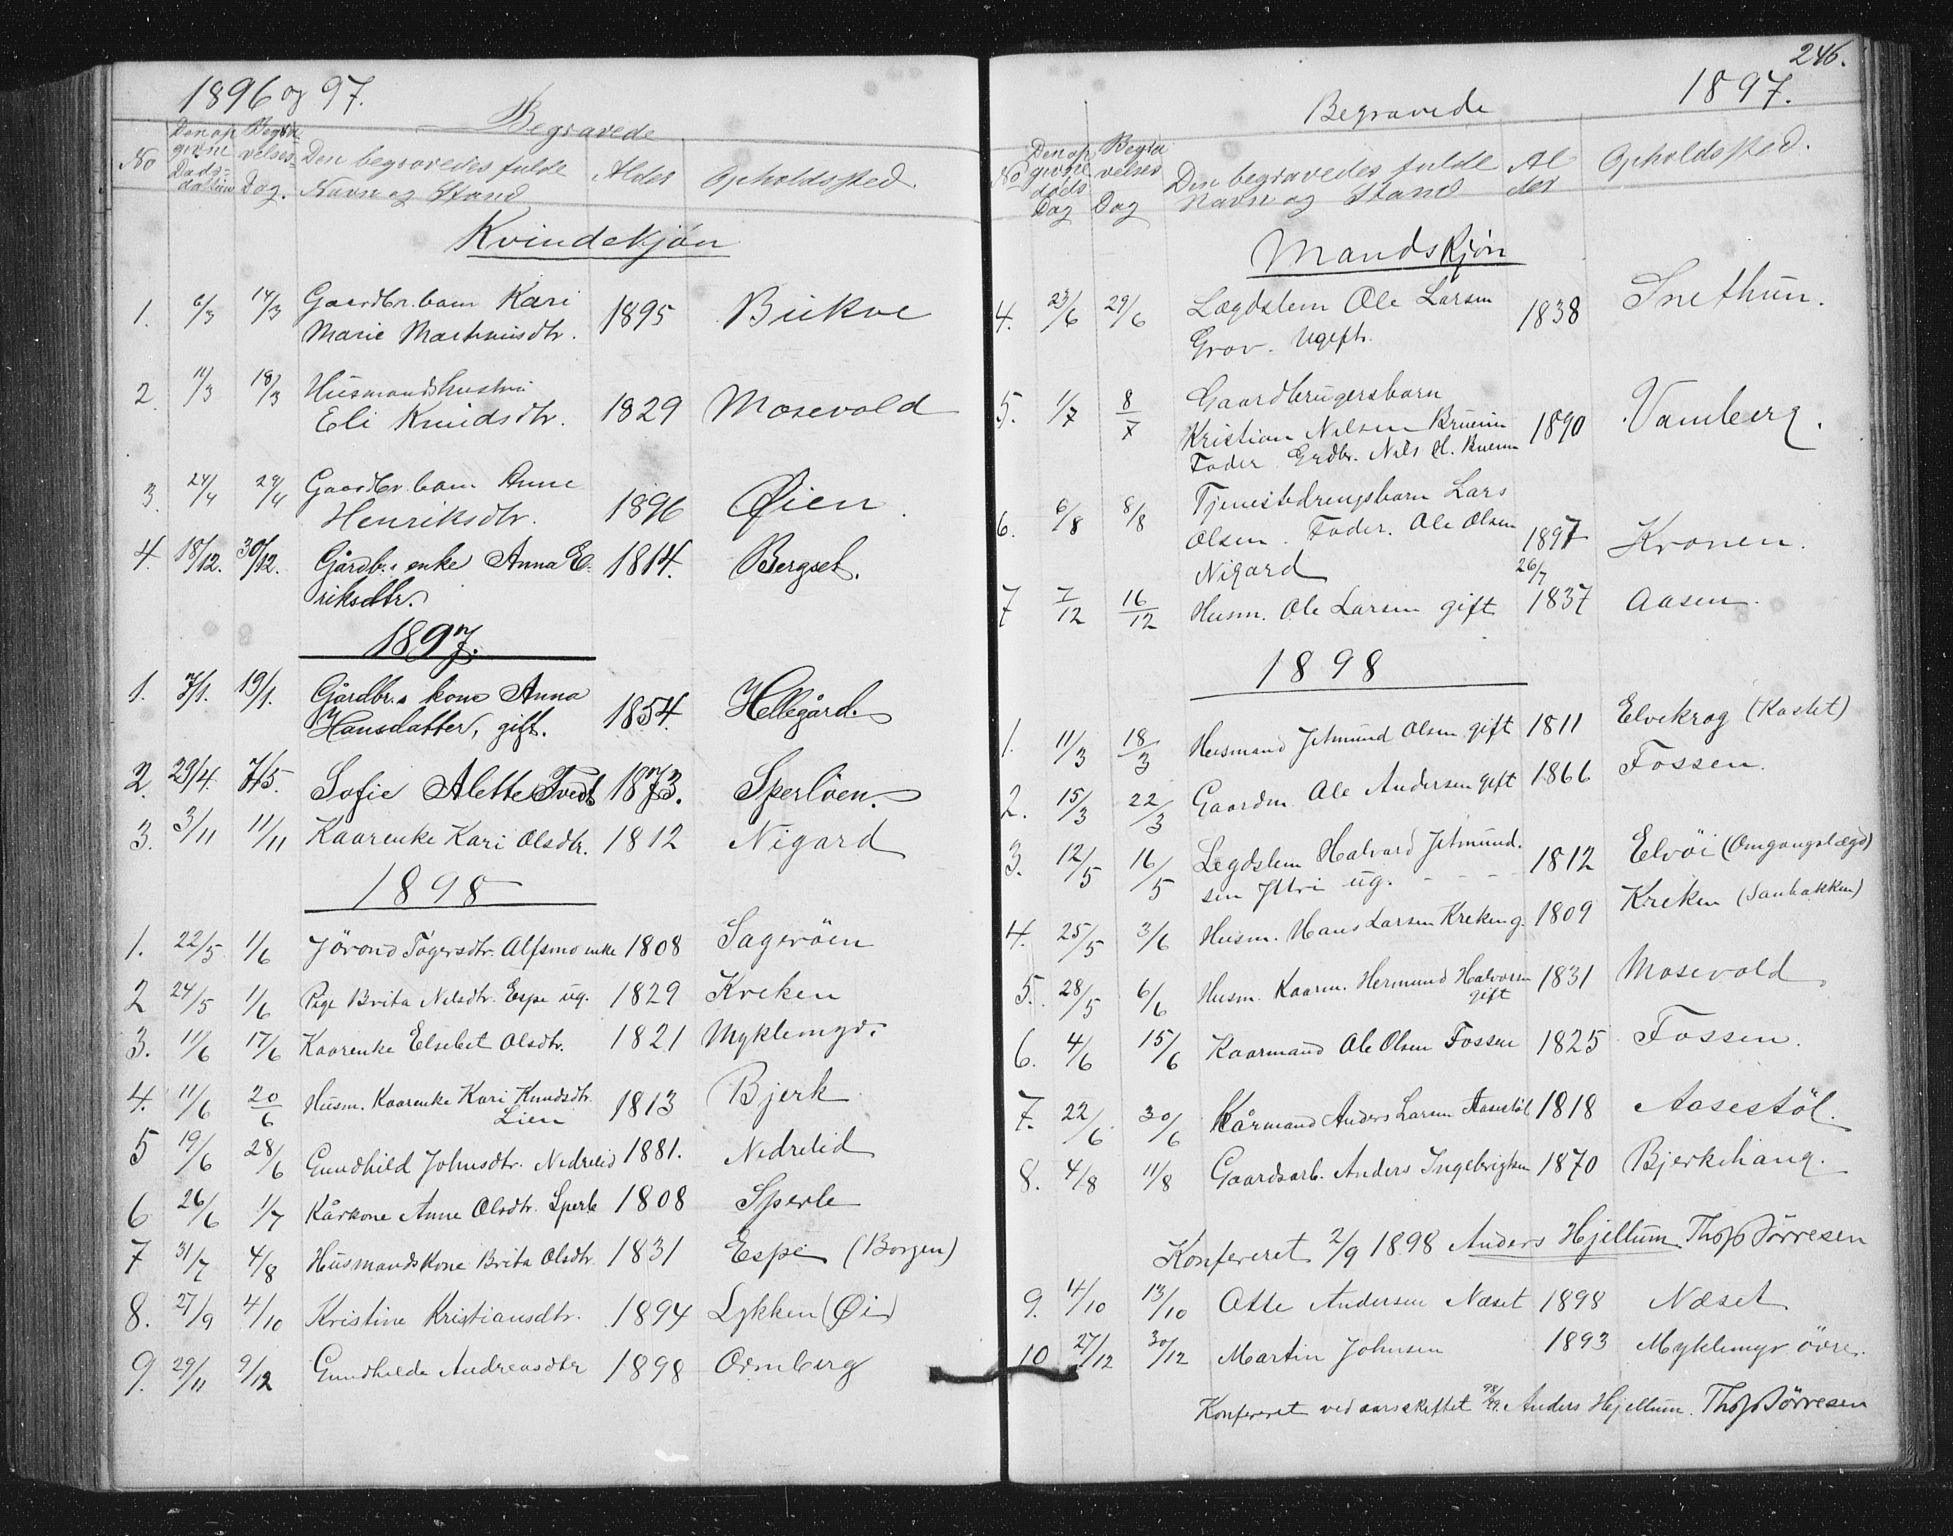 1896 og 97.
Begravede
No
Den op
givne
Døds-
datum
Begra
velses-
Dag.
Den begravedes fulde
Navn og Stand
Alder
Opholdssted.
Kvindekjøn
1. 6/3 14/3 Gaardbr. barn Kari 1895 Birkve
Marie Martinusdtr.
2. 11/3 18/3 Husmandshustru
Eli Knudsdtr. 1829 Mosevold
3. 24/4 29/4 Gaardbr. barn Anne
Henriksdtr. 1896 Øien.
4. 18/12. 30/12. Gårdb.s enke Anna E- 1814. Bergset.
riksdtr.
1897.
1. 7/1. 19/1. Gårdbr.s kone Anna 1854. Hellegård.
Hansdatter, gift.
2. 29/4. 7/5. Sofie Alette Tvedt 1873. Sperlöen.
3. 3/11 11/11 Kaarenke Kari Olsdtr. 1812 Nigard
1898
1. 22/5 1/6 Jörond Tögersdtr. Alfsmo enke 1808 Sageröen
2 24/5 1/6 Pige Brita Nilsdtr. Espe ug. 1829 Kreken
3. 11/6 17/6 Kaarenke Elsebet Olsdtr. 1821 Myklemyr.
4. 11/6 20/6 Husm. Kaarenke Kari Knudsdtr. 1813 Bjerk
Lien
5 19/6 28/6 Gundhild Johnsdtr. Nedrelid 1881. Nedrelid
6 26/6 1/7 Kårkone Anne Olsdtr. Sperle 1808 Sperle
7 31/7 4/8 Husmandskone Brita Olsdtr. 1831 Espe (Borgen)
8. 27/9 4/10 Kristine Kristiansdtr. 1894 Lykken (Øi)
9. 29/11 9/12 Gundhilde Andreasdtr 1898 Ormberg
246.
1897.
Begravede
No
Den op
givne
døds
Dag
Begra
velses
Dag
Den begravedes fulde
Navn og Stand
Al
der
Opholdssted.
Mandskjøn
4. 23/6 29/6 Lægdslem Ole Larsen 1838 Snethun.
Grov. Ugift.
5. 1/7 8/7 Gaardbrugersbarn
Kristian Nilsen Bruem 1890 Vamberg.
Fader Grdbr. Nils H. Bruem
6. 6/8 8/8 Tjenestedrengsbarn Lars
Olsen. Fader. Ole Olsen 1897 Kronen.
Nigard 26/7
7 7/12 16/12 Husm. Ole Larsen gift 1837 Aasen.
1898
1. 11/3 18/3 Husmand Jetmund Olsen gift 1811 Elvekrog (Kastet)
2. 15/3 22/3 Gaardm. Ole Andersen gift 1866 Fossen.
3. 12/5 16/5 Legdslem Halvard Jetmund. 1812 Elvöi (Omgangslægd)
sen Yttri ug. - - -
4. 25/5 3/6 Husm. Hans Larsen Kreken g. 1809 Kreken (Sanbakken)
5. 28/5 6/6 Husm. Kaarm. Hermund Halvorsen 1831 Mosevold
gift
6. 4/6 15/6 Kaarmand Ole Olsen Fossen 1825 Fossen.
7. 22/6 30/6 Kårmand Anders Larsen Aasestöl 1818 Aasestöl.
8. 4/8 11/8 Gaardsarb. Anders Ingebrigtsen 1870 Bjerkehaug.
Konfereret 2/9 1898 Anders Hjellum Thos Törresen
9. 4/10 13/10 Otte Andersen Næset 1898 Næset
10 27/12 30/12 Martin Johnsen 1893 Myklemyr övre.
Konfereret ved aarsskiftet 98/99. Anders Hjellum. Thos Törresen